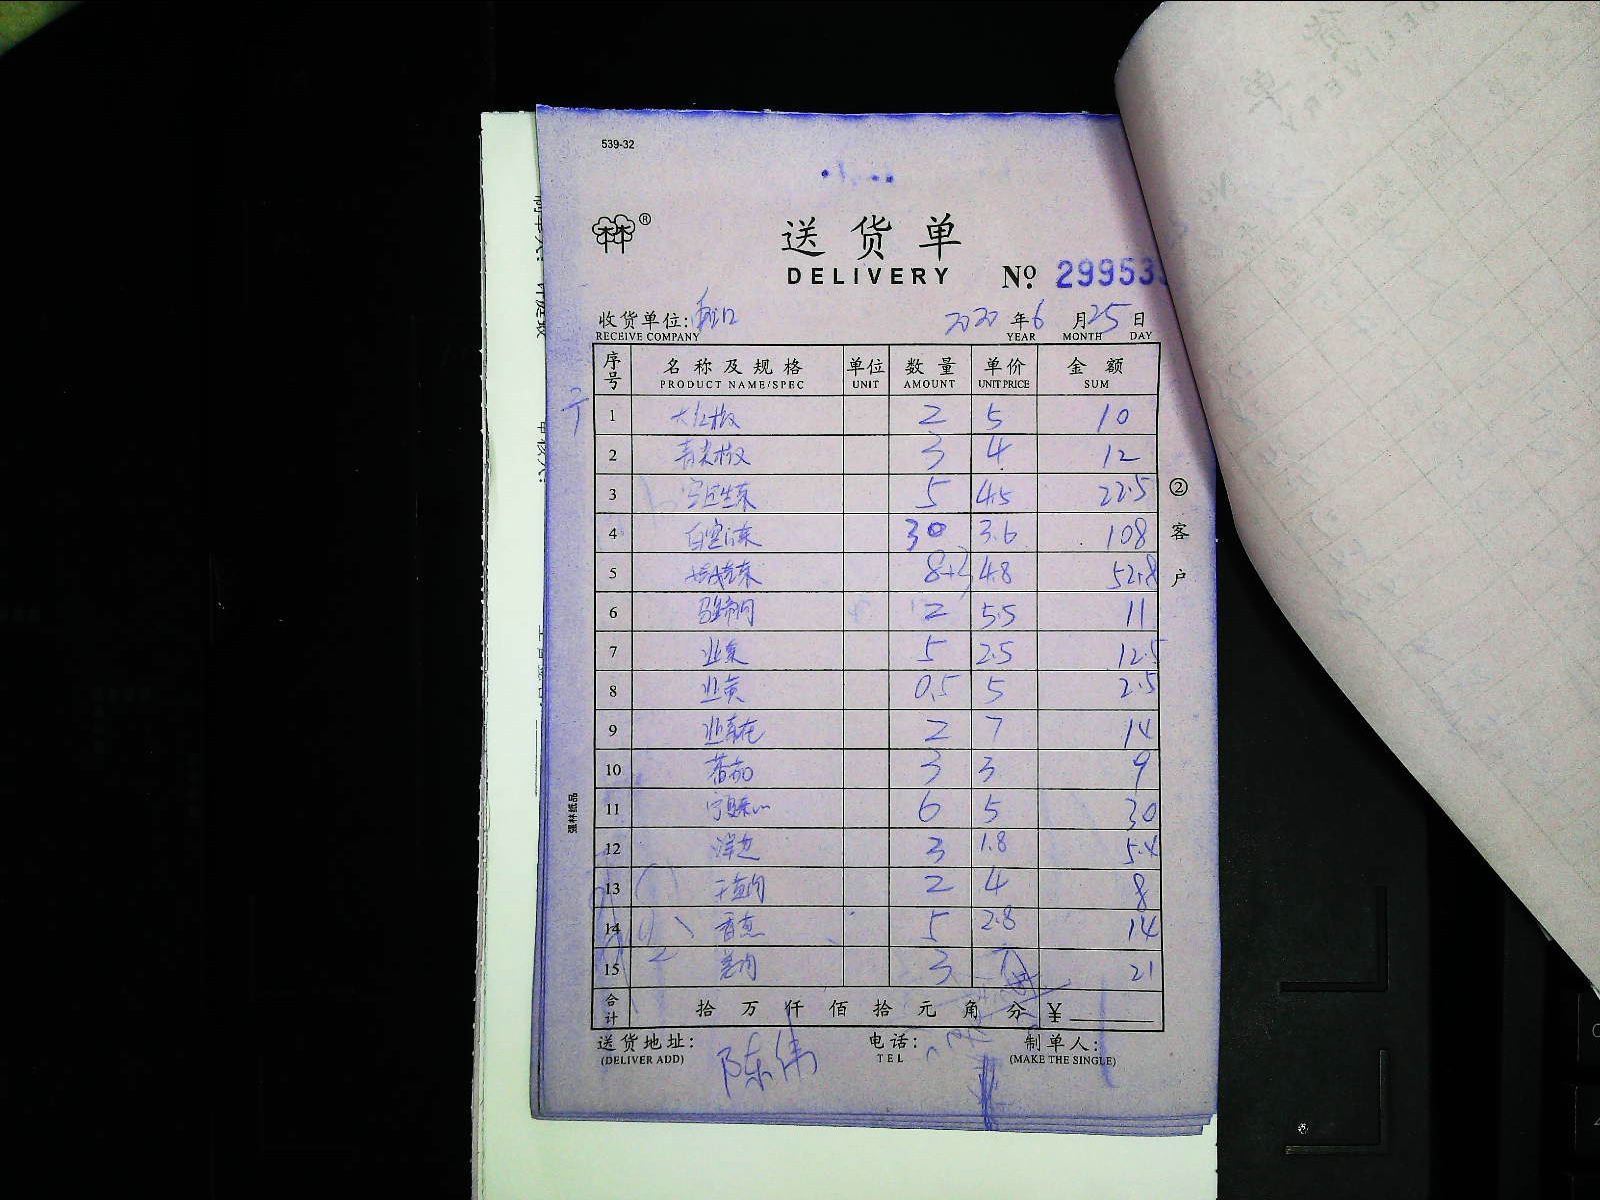 539-32
送货单
DELIVERY № 29953
收货单位: 2020 年 6 月 25 日
RECEIVE COMPANY YEAR MONTH DAY
序号 名称及规格 单位 数量 单价 金额
PRODUCT NAME/SPEC UNIT AMOUNT UNIT PRICE SUM
1 大红椒 2 5 10
2 青尖椒 3 4 12
3 生菜 5 4.5 22.5
4 白空心菜 30 3.6 108
5 8+3 4.8 52.8
6 马蹄肉 2 5.5 11
7 韭菜 5 2.5 12.5
8 韭黄 0.5 5 2.5
9 韭菜花 2 7 14
10 番茄 3 3 9
11 6 5 30
12 洋芝 3 1.8 5.4
13 2 4 8
14 香芹 5 2.8 14
15 3 7 21
合计 拾 万 仟 佰 拾 元 角 分 ¥
送货地址: 电话: 制单人:
(DELIVER ADD) TEL (MAKE THE SINGLE)
陈伟
② 客户
强林纸品